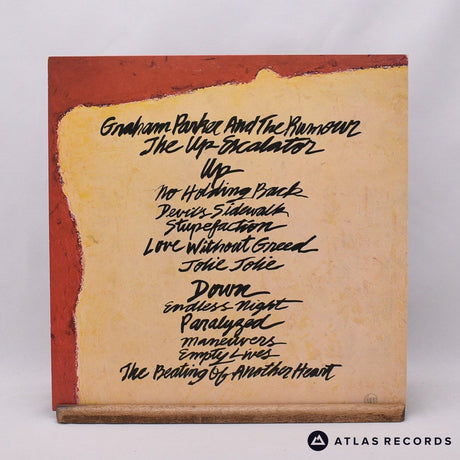 Graham Parker And The Rumour
The Up Escalator
Up
No Holding Back
Devil's Sidewalk
Stupefaction
Love Without Greed
Jolie Jolie
Down
Endless Night
Paralyzed
Maneuvers
Empty Lives
The Beating Of Another Heart
ATLAS RECORDS